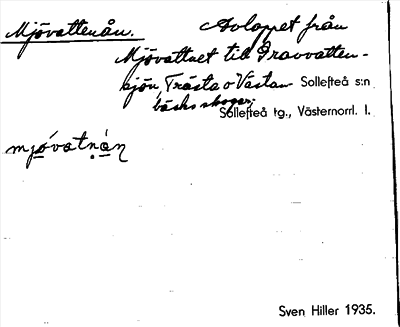 Mjövattenån. Avloppet från
Mjövattnet till Gravvatten-
sjön, Trästa o Västan- Sollefteå s:n
bäcks skogar. Sollefteå tg., Västernorrl. l.
mjóvatnán
Sven Hiller 1935.